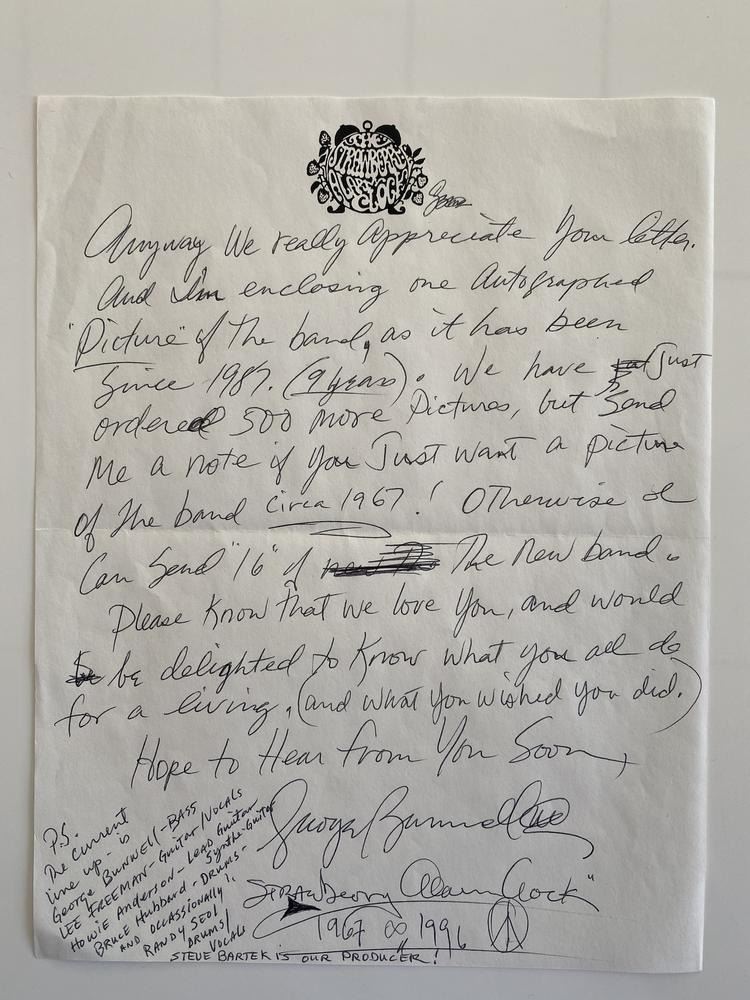 THE
STRAWBERRY
ALARM
CLOCK
Anyway We really Appreciate Your letter.
And I'm enclosing one Autographed
"Picture" of the band, as it has been
Since 1987. (9 years). We have Just
ordered 500 more Pictures, but Send
Me a note if You Just want a picture
of the band circa 1967! Otherwise I
Can Send "16" of The New band.
Please Know that we love You, and would
be delighted to Know what you all do
for a living. (and what You wished You did.)
Hope to Hear from You Soon,
George Bunnell
"Strawberry Alarm Clock"
1967 ∞ 1996
P.S.
The current
line up - is
George BUNNELL-BASS
LEE FREEMAN-Guitar/VOCALS
Howie Anderson-LEAD Guitar
Synthe-Guitar
Bruce Hubbard-DRUMS-
AND OCCASSIONALLY!,
RANDY SEOL
DRUMS/
VOCALS
STEVE BARTEK IS OUR PRODUCER!